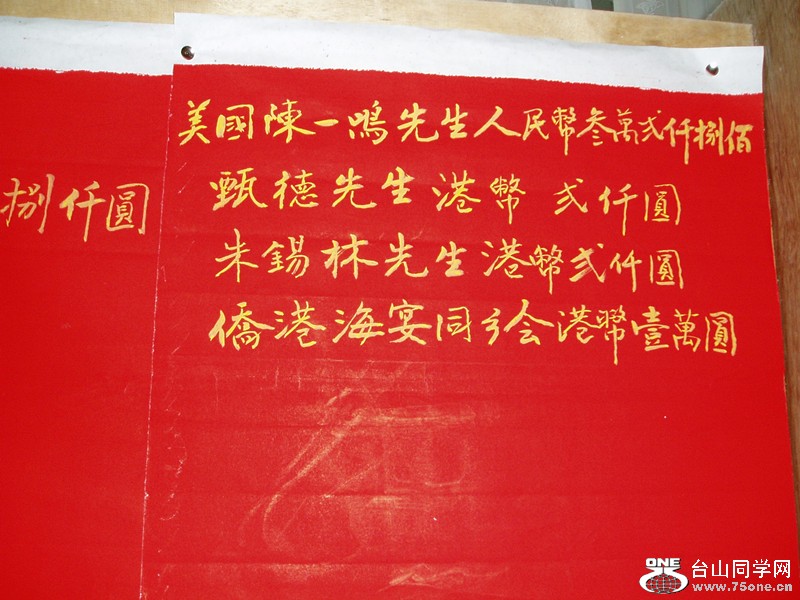 捌仟圓
美國陳一鳴先生人民幣叁萬弍仟捌佰
甄德先生港幣弍仟圓
朱錫林先生港幣弍仟圓
僑港海宴同乡会港幣壹萬圓
ONE
75
台山同学网
www.75one.cn